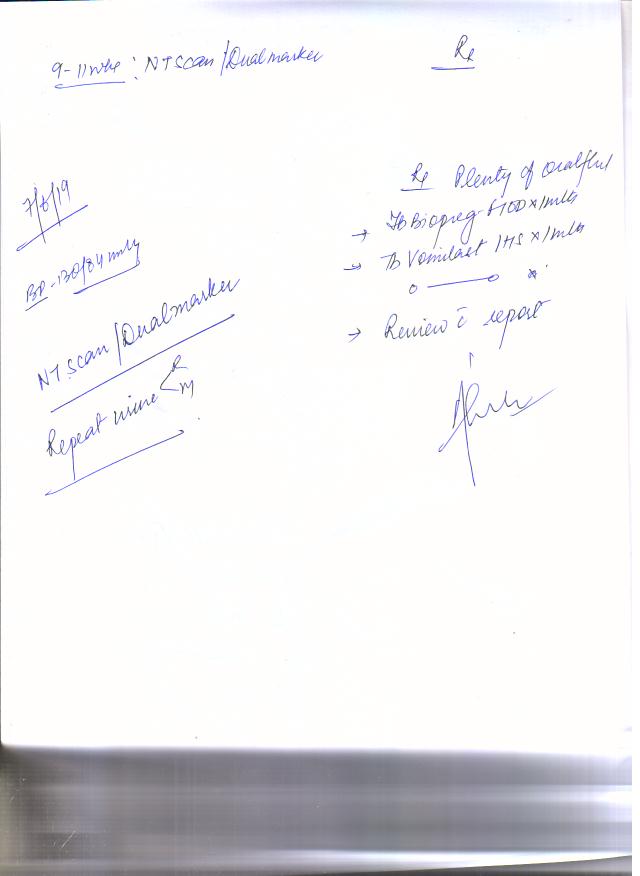 9-11wks : NT Scan/Dualmarker
Rx
7/6/19
BP-130/84 mmHg
NT scan/Dualmarker
Repeat urine < R
M
Rx Plenty of oral fluid
→ Tb Biopreg x 1mth
→ Tb Vomilast 1HS x 1mth
o — o x
→ Review c̄ report